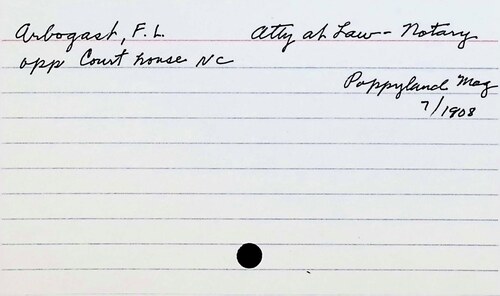 Arbogast, F. L. Atty at Law - Notary
opp Court house NC
Poppyland Mag
7/1908